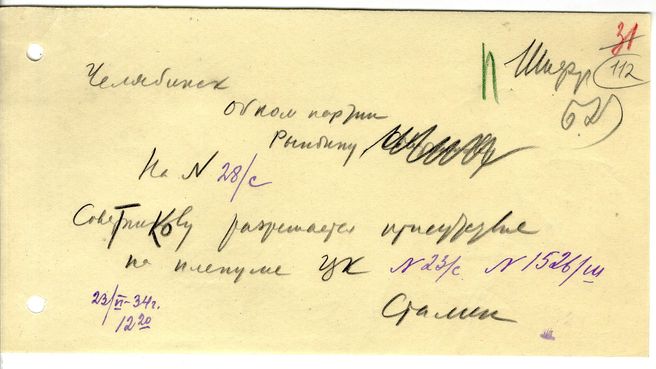 П Шифр
31
112
Челябинск
Обком партии
Рындину
На N 28/с
Советникову разрешается присутствие
на пленуме ЦК N 23/с. N 1526/ш
23/VI-34г.
12 20
Сталин